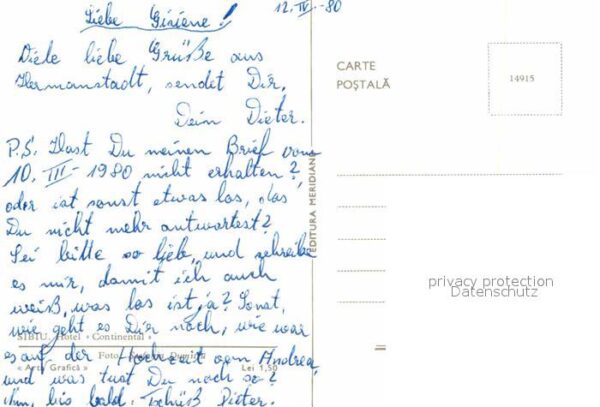 12. IV - 80
Liebe Giziene!
Viele liebe Grüße aus
Hermanstadt, sendet Dir,
Dein Dieter.
P.S. Hast Du meinen Brief vom
10. III - 1980 nicht erhalten?
oder ist sonst etwas los, das
Du nicht mehr antwortest?
Sei bitte so lieb, und schreibe
es mir, damit ich auch
weiß, was los ist, ja? Sonst,
wie geht es Dir noch, wie war
es auf der Hochzeit von Andrea,
und was tust Du noch so?
bis bald. Tschüß Dieter.
SIBIU. Hotel « Continental »
Foto:
« Arta Grafică » Lei 1,50
EDITURA MERIDIANE
CARTE
POȘTALĂ
14915
privacy protection
Datenschutz